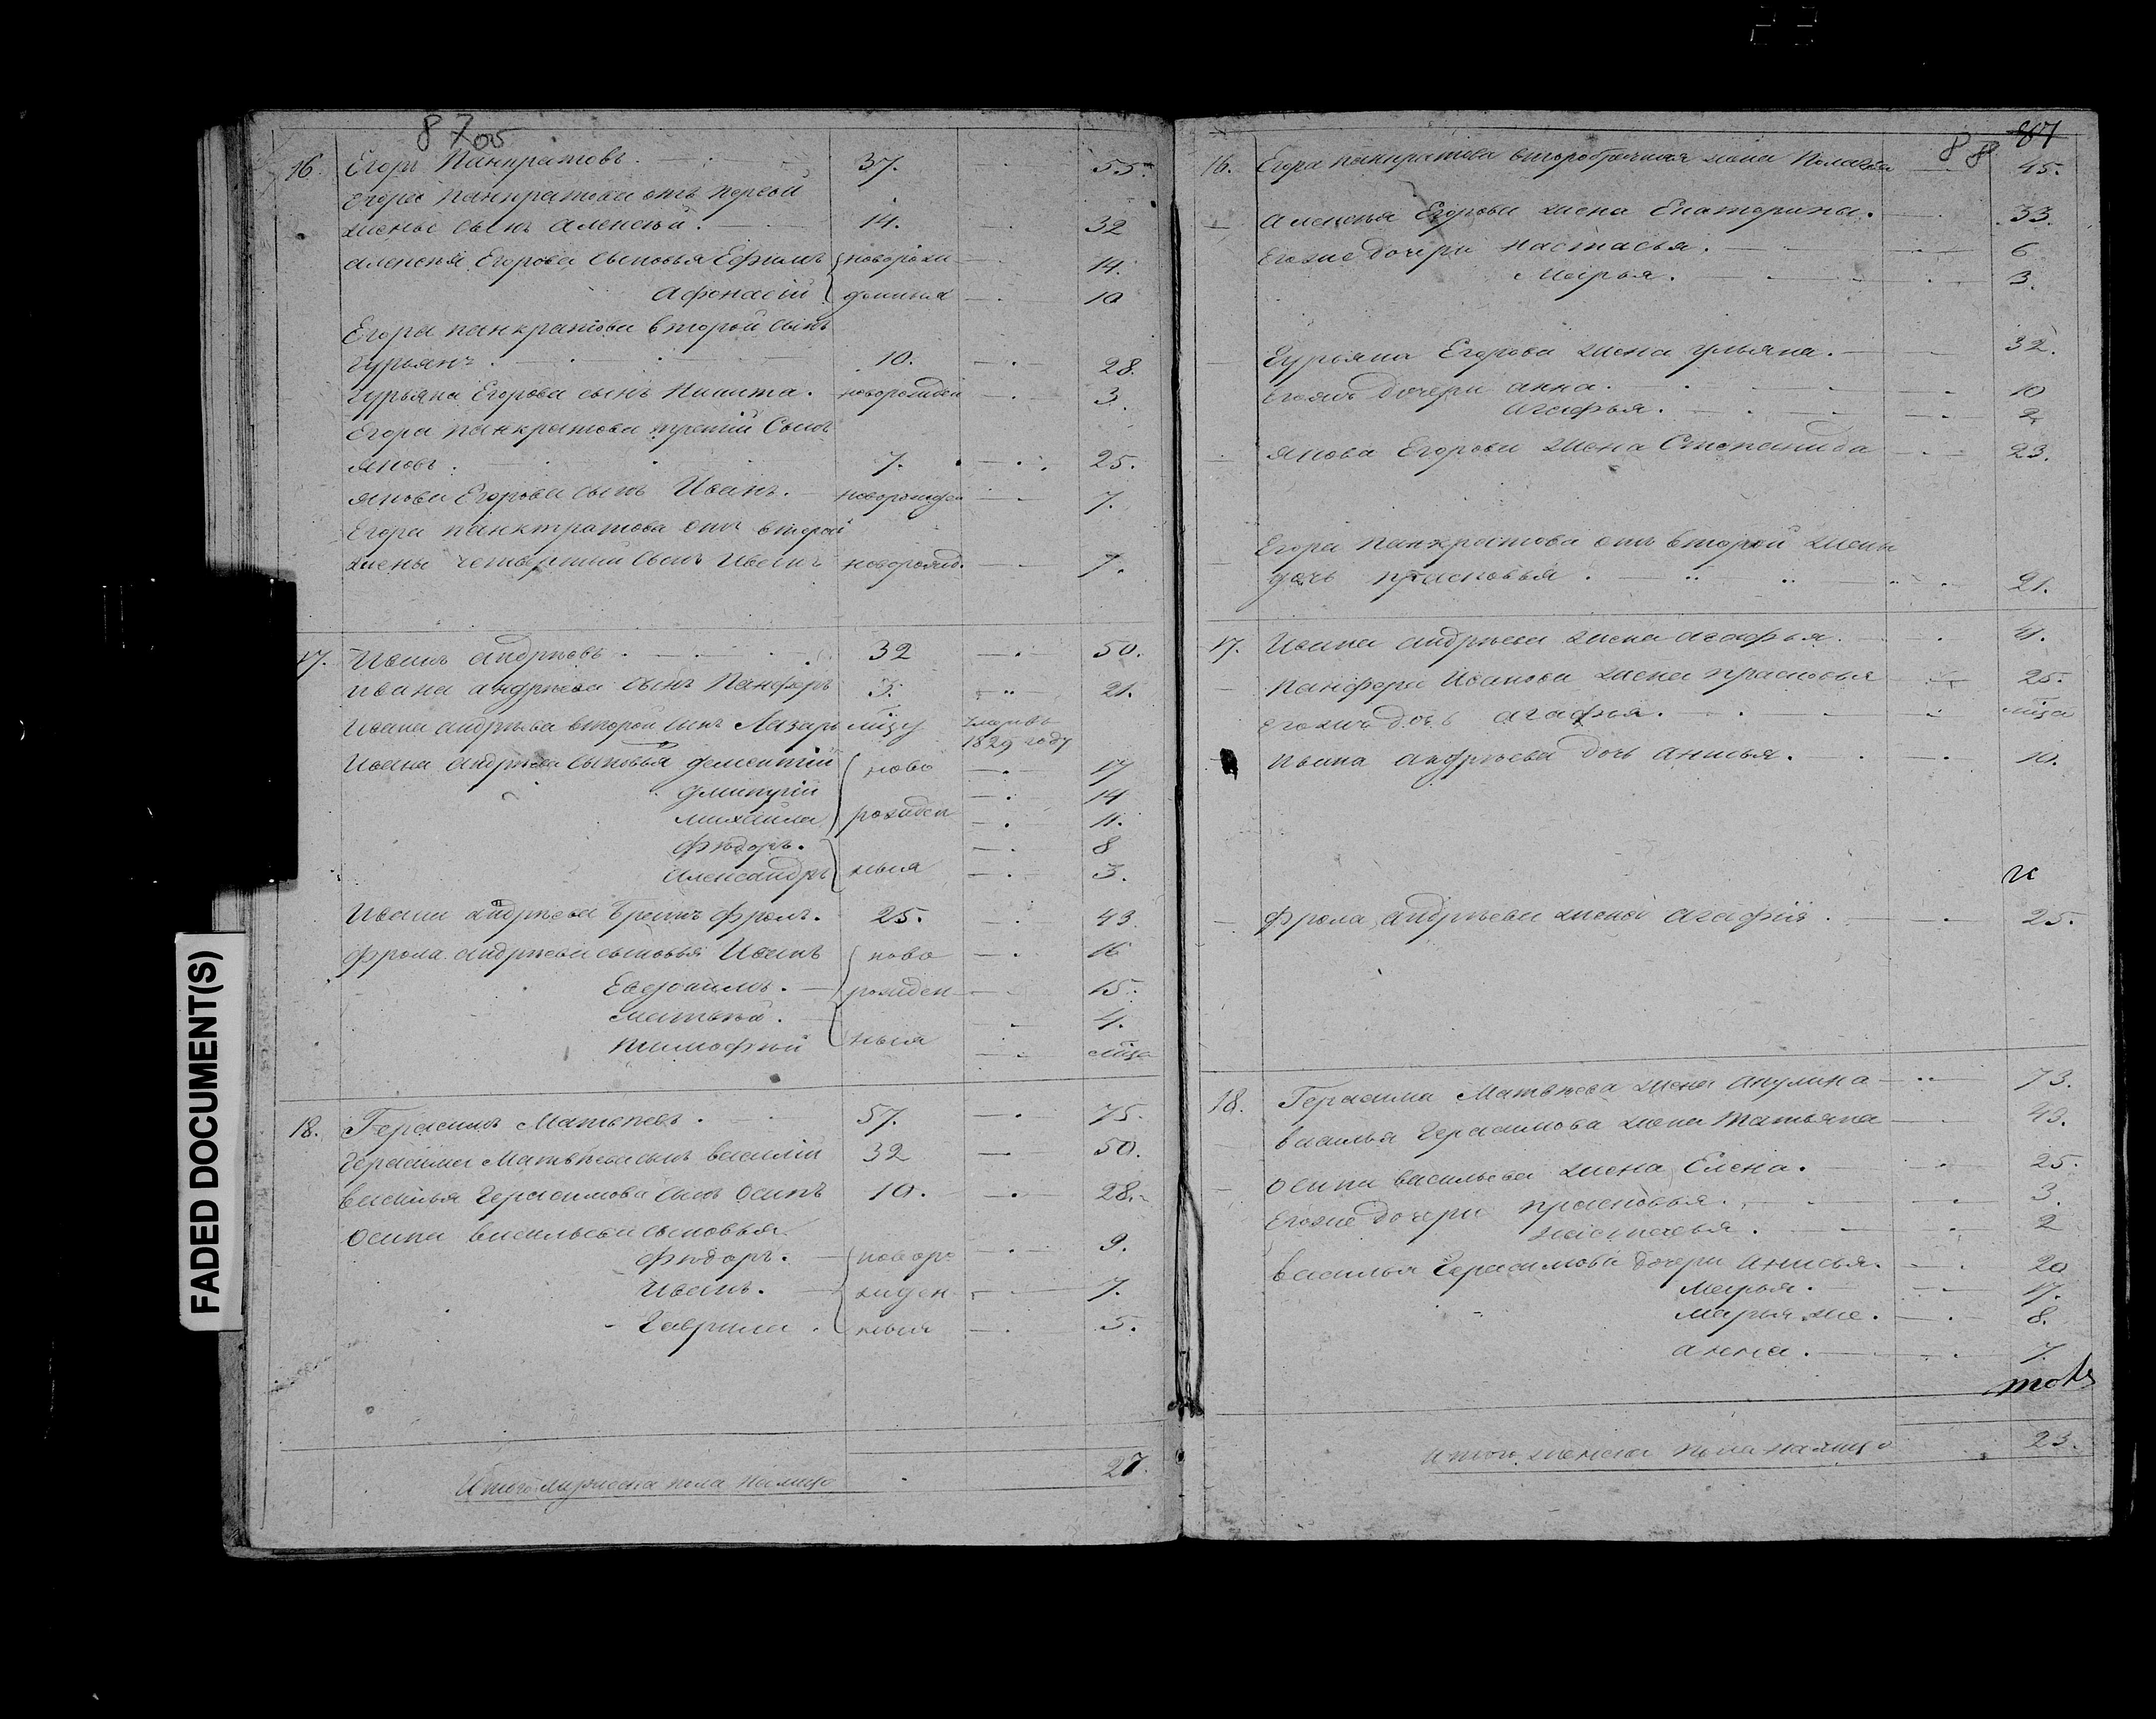 87 об
16. Егоръ Панкратовъ. 37. 55.
Егора Панкратова отъ первой
жены сынъ Алексѣй. 14. 32
Алексѣя Егорова сыновья Ефимъ новорож 14.
Афонасій денныя 10
Егора Панкратова второй сынъ
Гурьянъ. 10. 28.
Гурьяна Егорова сынъ Никита. новорожден 3.
Егора Панкратова третій Сынъ
Яковъ. 7. 25.
Якова Егорова сынъ Иванъ. новорожден 7.
Егора Панктратова отъ второй
жены четвертый сынъ Иванъ новорожд. 7.
17. Иванъ Андрѣевъ. 32 50.
Ивана Андрѣева сынъ Панферъ 3. 21.
Ивана Андрѣева второй сынъ Лазарь мѣсу умре въ
1829 году
Ивана Андрѣева сыновья Дементій ново 17
Дмитрій 14
Михайла рожден 11.
Фѣдоръ. 8
Александръ ныя 3.
Ивана Андрѣева братъ Фролъ. 25. 43.
Фрола Андрѣева сыновья Иванъ ново 16
рожден 15.
Матвѣй. 4.
Тимофѣй ныя мѣса
18. Герасимъ Матвѣевъ. 57. 75.
Герасима Матвѣева сынъ Василій 32 50.
Василья Герасимова сынъ Осипъ 10. 28.
Осипа Васильева сыновья
Фѣдоръ. новоро 9.
Иванъ. жден 7.
Гаврила. ныя 5.
Итого мужеска пола налицо 27.
88 87
16. Егора Панкратова второбрачная жена Пелагѣя 45.
Алексѣя Егорова жена Екатерина. 33.
Егоже дочери Настасья. 6
Марья. 3.
Гурьяна Егорова жена Ульяна. 32.
Егожъ дочери Анна. 10
Агафья. 2
Якова Егорова жена Степанида 23.
Егора Панкратова отъ второй жены
дочь Прасковья. 21.
17. Ивана Андрѣева жена Агафья. 41.
Панфера Иванова жена Прасковья 25.
Егожъ дочь Агафья. мѣса
Ивана Андрѣева дочь Анисья. 10.
Фрола Андрѣева жена Агафія. 25.
18. Герасима Матвѣева жена Акулина 73.
Василья Герасимова жена Татьяна 43.
Осипа Васильева жена Елена. 25.
Егоже дочери Прасковья. 3.
Настасья. 2
Василья Герасимова дочери Анисья. 20
Марья. 17.
Марья же. 8.
Анна. 7.
Итого женска пола налицо 23.
FADED DOCUMENT(S)